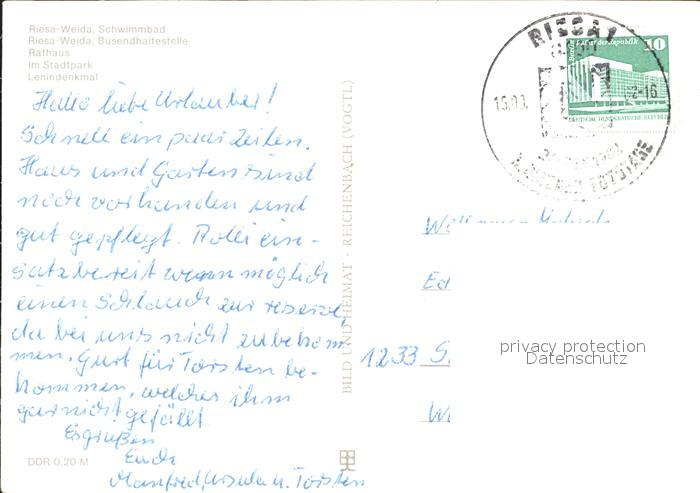 Riesa-Weida, Schwimmbad
Riesa-Weida, Busendhaltestelle
Rathaus
Im Stadtpark
Lenindenkmal
Hallo liebe Urlauber!
Schnell ein paar Zeilen.
Haus und Garten sind
noch vorhanden und
gut gepflegt. Rolli ein-
satzbereit wenn möglich
einen Schlauch zur reserve,
da bei uns nicht zu bekom
men. Gurt für Torsten be-
kommen, welcher ihm
garnicht gefällt.
Es grüßen
Euch
Manfred, Ursula u. Torsten
DDR 0,20 M
BILD UND HEIMAT · REICHENBACH (VOGTL)
RIESA 1
Berlin Palast der Republik
10
DEUTSCHE DEMOKRATISCHE REPUBLIK
-16
FOTOTAGE
Ed
1233 S
privacy protection
Datenschutz